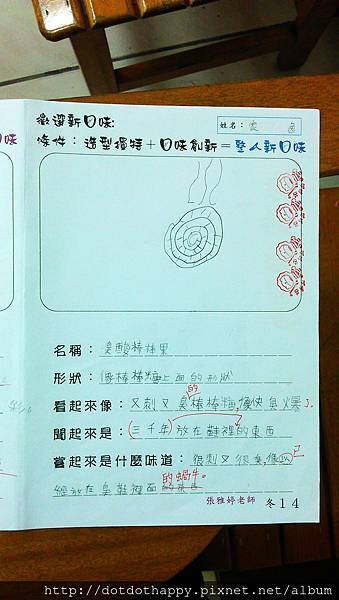 徵選新口味:
姓名:
條件:造型獨特+口味創新=驚人新口味
名稱:臭酸棒棒果
形狀:像棒棒糖上面的形狀
的
看起來像:又刺又臭棒棒糖,像快臭爆了。
聞起來是:(三千年)放在鞋裡的東西
嘗起來是什麼味道:很刺又很臭,像 已
的蝸牛。
經放在臭鞋裡面
張雅婷老師
冬14
http://dotdothappy.pixnet.net/album